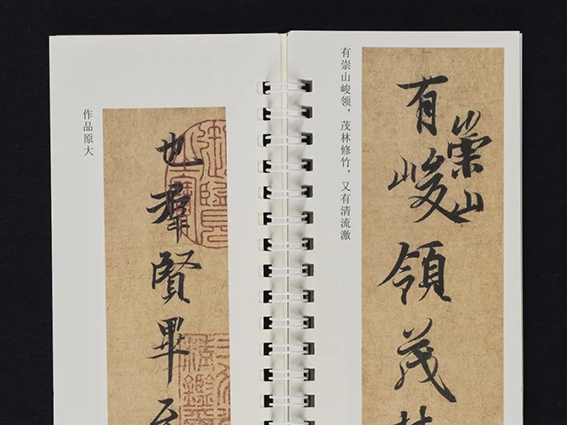 作品原大
也羣賢畢至
有崇山峻领，茂林修竹，又有清流激
有崇山
峻領茂林